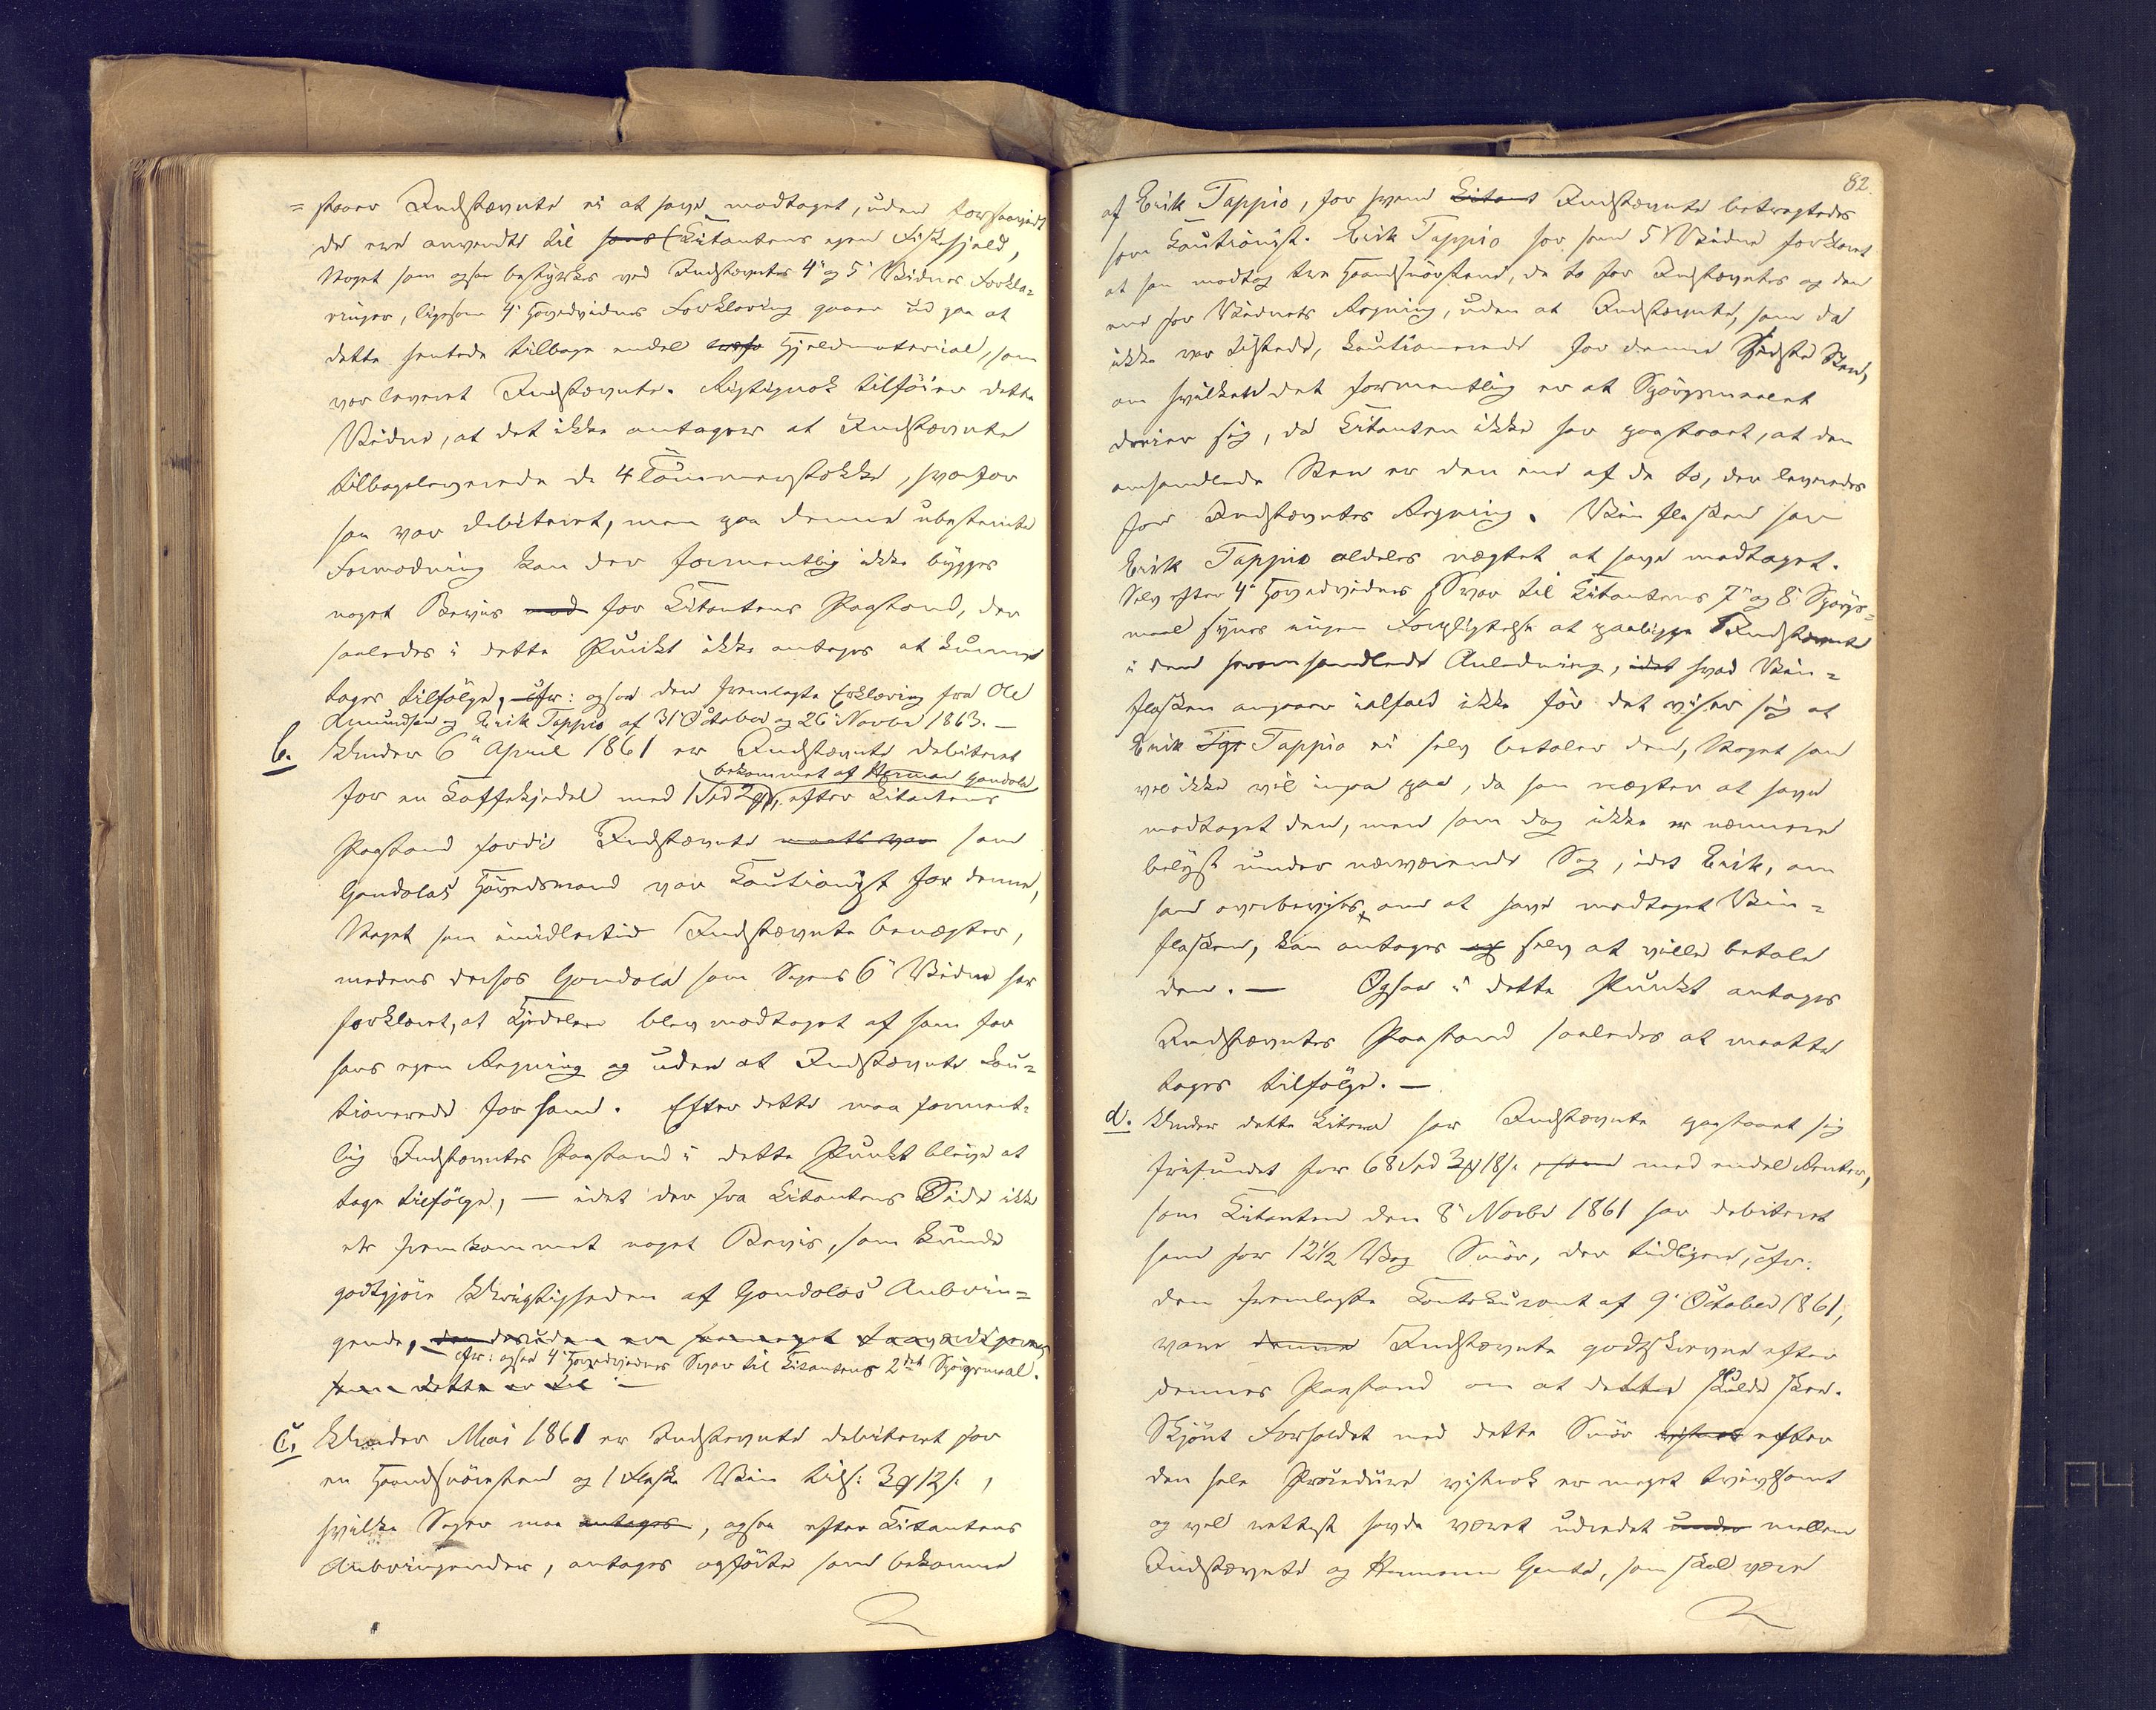 = staaer Indstævnte ei at have modtaget, uden forsaavidt
de ere anvendte til hans Citantens egen Fiskehjeld,
Noget som ogsaa bestyrkes ved Indstævntes 4de og 5te Vidners Forkla-
ringer, ligesom 4de Hovedvidnes Forklaring gaaer ud paa at
dette hentede tilbage endel Hjeldmaterial, som
var leveret Indstævnte. Rigtignok tilføier dette
Vidne, at det ikke antager at Indstævnte
tilbageleverede de 4 Tømmerstokke, hvorfor
han var debiteret, men paa denne ubestemte
Formodning kan der formentlig ikke bygges
noget Beviis mod for Citantens Paastand, der
saaledes i dette Punkt ikke antages at kunne
tages tilfølge, cfr: ogsaa den fremlagte Erklæring fra Ole
Amundsen og Erik Tappio af 31 October og 26 Novbr 1863. —
b. Under 6te April 1861 er Indstævnte debiteret
bekommet af Herman Gondola
for en Kaffekjedel med 1 Spd 2 , efter Citantens
Paastand fordi Indstævnte som
Gondolas Høvedsmand var Cautionist for denne,
Noget som imidlertid Indstævnte benægter,
medens derhos Gondola som Sagens 6te Vidne har
forklaret, at Kjedelen blev modtaget af ham for
hans egen Regning og uden at Indstævnte cau-
tionerede for ham. Efter dette maa forment-
lig Indstævntes Paastand i dette Punkt blive at
tage tilfølge, — idet der fra Citantens Side ikke
er fremkommet noget Beviis, som kunde
godtgjøre Urigtigheden af Gondolas Anbrin-
gende,
cfr: ogsaa 4de Hovedvidnes Svar til Citantens 2det Spørgsmaal.
—
c. Under Mai 1861 er Indstævnte debiteret for
en Haandsnøresten og 1 Flaske Viin tilf: 3 12 s. ,
hvilke Sager maa antages, ogsaa efter Citantens
Anbringender, antages opførte som bekomne
82.
af Erik Tappio, for hvem Citant Indstævnte betragtedes
som Cautionist. Erik Tappio har som 5te Vidne forklaret
at han modtog tre Haandsnørstene, de to for Indstævntes og den
ene for Vidnets Regning, uden at Indstævnte, som da
ikke var tilstede, cautionerede for denne sidste Sten,
om hvilken det formentlig er at Spørgsmaalet
dreier sig, da Citanten ikke har paastaaet, at den
omhandlede Sten er den ene af de to, der leveredes
for Indstævntes Regning. Viinflasken har
Erik Tappio aldeles nægtet at have modtaget.
Selv efter 4de Hovedvidnes Svar til Citantens 7de og 8de Spørgs-
maal synes ingen Forpligtelse at paaligge Indstævnte
i den heromhandlede Anledning, idet hvad Viin-
flasken angaaer ialfald ikke før det viser sig at
Erik Tap Tappio ei selv betaler den, Noget han
vel ikke vil ingaa paa, da han nægter at have
modtaget den, men som dog ikke er nærmere
belyst under nærværende Sag, idet Erik, om
han overbevises om at have modtaget Viin-
flasken, kan antages selv at ville betale
den. — Ogsaa i dette Punkt antages
Indstævntes Paastand saaledes at maatte
tages tilfølge. —
d. Under dette Litera har Indstævnte paastaaet sig
frifundet for 68 Spd 3 18 s. med endel Renter,
som Citanten den 8de Novbr 1861 har debiteret
ham for 12½ Vog Smør, der tidligere, cfr:
den fremlagte Contokurant af 9de October 1861,
vare denne Indstævnte godtskrevne efter
dennes Paastand om at dette skulde skee.
Skjønt Forholdet med dette Smør efter
den hele Procedure vistnok er meget tvivlsomt
og vel rettest havde været udredet under mellem
Indstævnte og Hermann Gent, som skal være